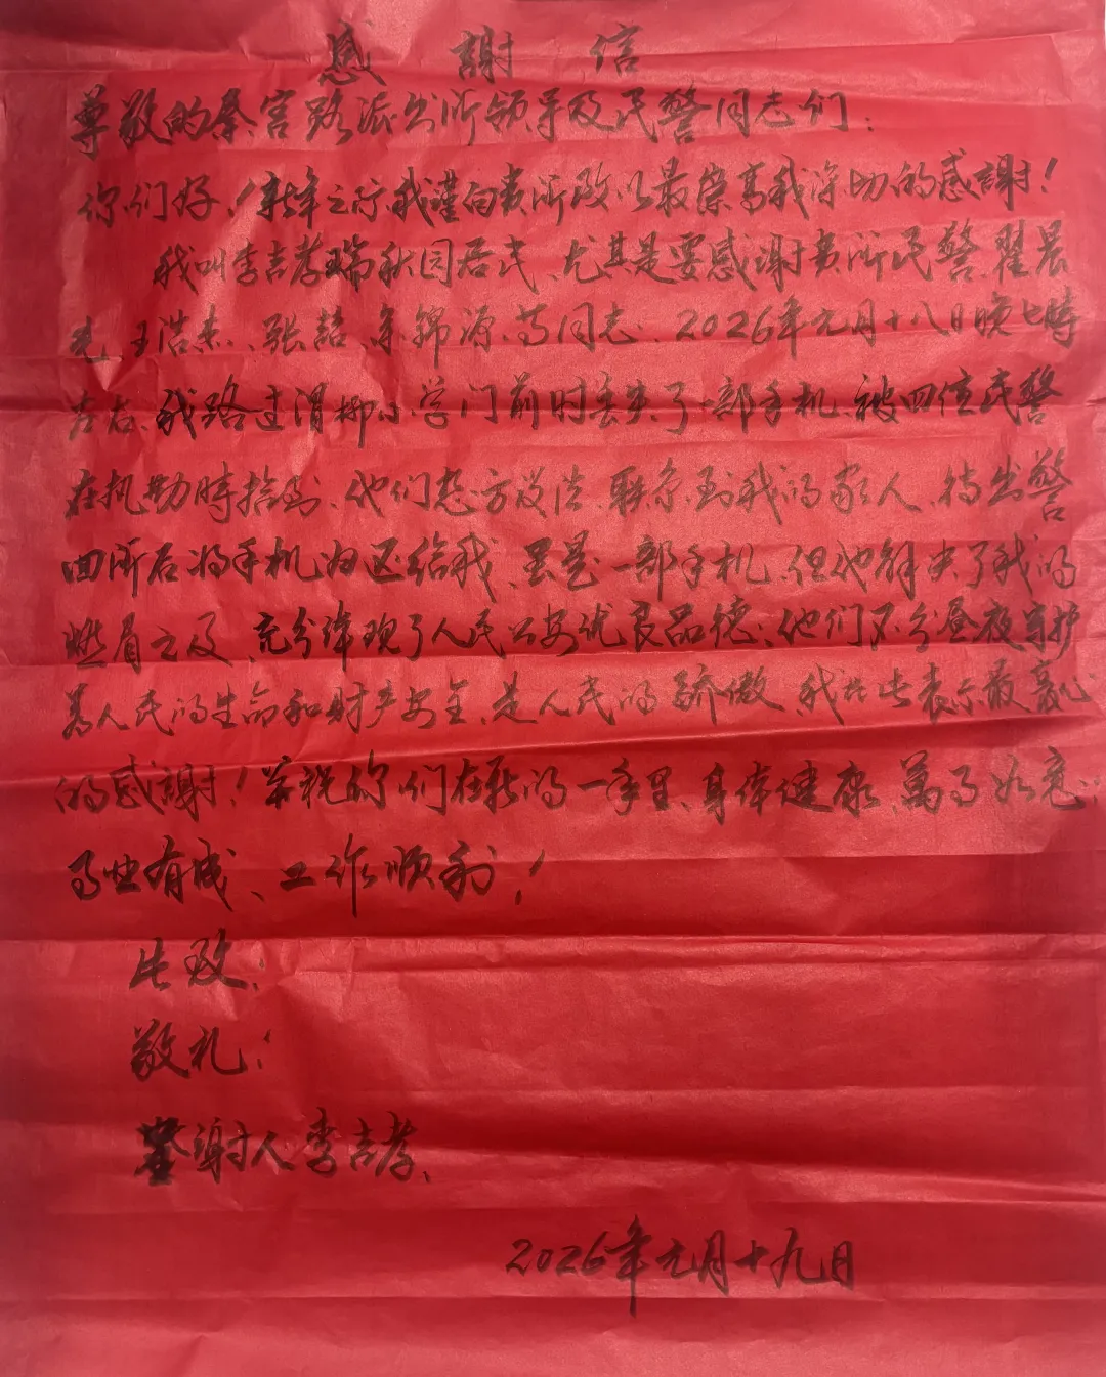 感謝信
尊敬的秦宫路派出所领导及民警同志们：
你们好！新年之际我谨向贵所致以最崇高我深切的感謝！
我叫李吉孝瑞秋园居民、尤其是要感谢贵所民警、翟晨
光、王浩杰、张喆、余锦源、等同志：2026年元月十八日晚七時
左右、我路过渭柳小学门前时丢失了一部手机、被四位民警
在执勤時拾到、他们想方设法、联系到我的家人、待出警
回所后将手机归还给我、虽是一部手机、但也解决了我的
燃眉之及、充分体现了人民公安优良品德；他们不分昼夜守护
着人民的生命和财产安全、是人民的骄傲、我在此表示最衷心
的感謝！并祝你们在新的一年里、身体健康、萬事如意；
事业有成、工作顺利！
此致：
敬礼！
谢人李吉孝、
2026年元月十九日